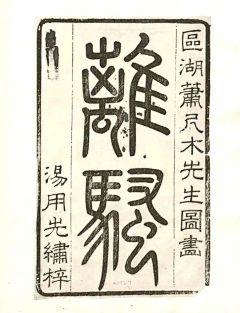 區湖蕭尺木先生圖畫
離騷
湯用先繡梓